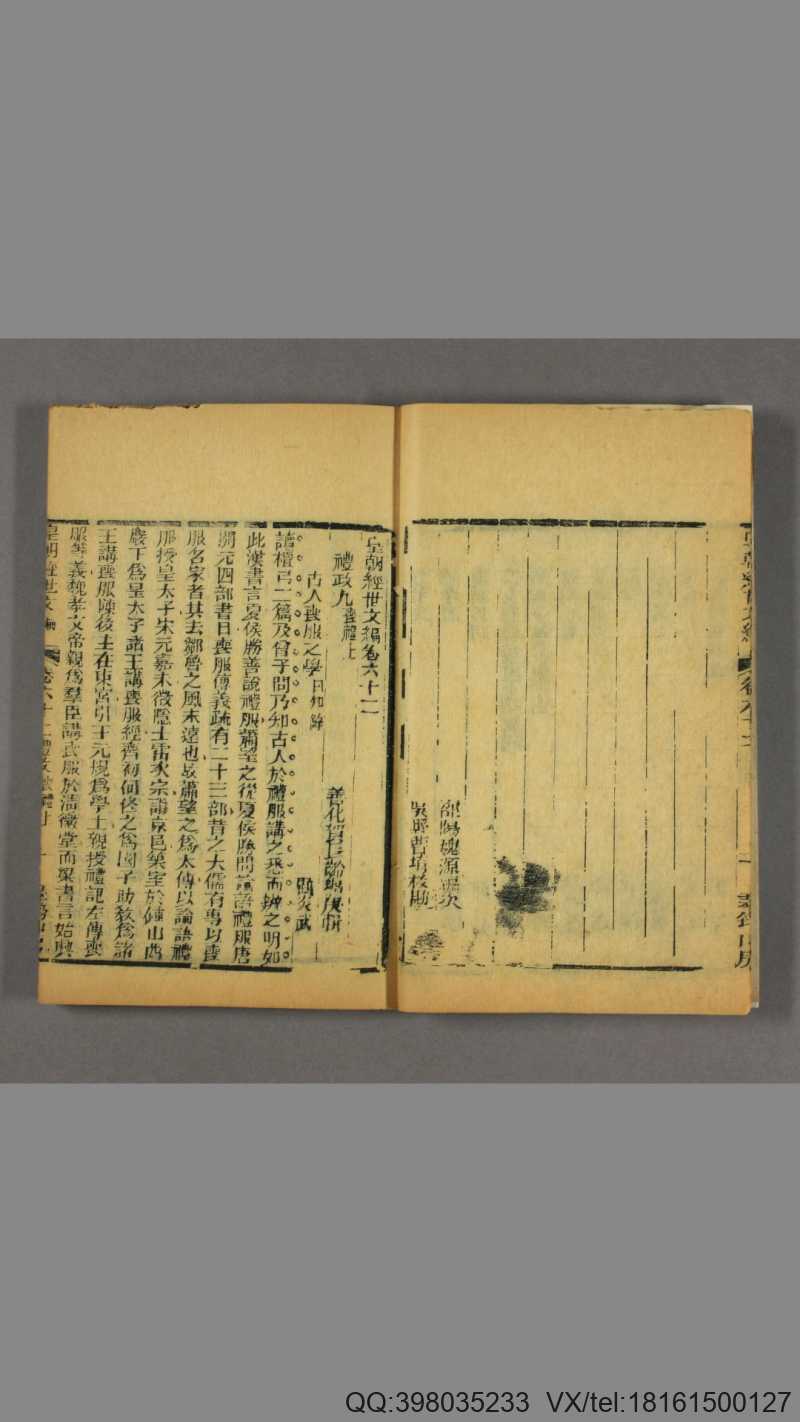 邵陽魏源編次
皇朝經世文編卷六十二
禮政九喪禮上
善化賀長齡耦庚輯
古人喪服之學日知錄
顧炎武
讀檀弓二篇及曾子問乃知古人於禮服講之悉而辨之明如
此漢書言夏侯勝善說禮服蕭望之從夏侯勝問論語禮服唐
開元四部書目喪服傳義疏有二十三部昔之大儒有專以喪
服名家者其去鄒魯之風未遠也故蕭望之為太傅以論語禮
服授皇太子宋元嘉末徵隱士雷次宗詣京邑築室於鍾山西
巖下為皇太子諸王講喪服經齊初何佟之為國子助教為諸
王講喪服陳後主在東宮引王元規為學士親授禮記左傳喪
服等義魏孝文帝親為羣臣講喪服於清徽堂而梁書言始興
皇朝經世文編
QQ:398035233 VX/tel:18161500127